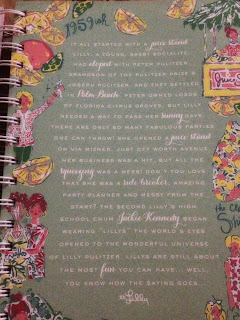 1959ish
IT ALL STARTED WITH a juice stand.
LILLY, A YOUNG, SASSY SOCIALITE
HAD eloped WITH PETER PULITZER,
GRANDSON OF THE PULITZER PRIZE'S
JOSEPH PULITZER, AND THEY SETTLED
IN Palm Beach. PETER OWNED LOADS
OF FLORIDA CITRUS GROVES, BUT LILLY
NEEDED A WAY TO PASS HER sunny DAYS.
THERE ARE ONLY SO MANY FABULOUS PARTIES
ONE CAN THROW! SHE OPENED a juice stand
ON VIA MIZNER, JUST OFF WORTH AVENUE.
HER BUSINESS WAS A HIT, BUT ALL THE
squeezing WAS A MESS! DON'T YOU LOVE
THAT SHE WAS A rule breaker, AMAZING
PARTY PLANNER AND MESSY FROM THE
START? THE SECOND LILLY'S HIGH
SCHOOL CHUM Jackie Kennedy BEGAN
WEARING "LILLYS" THE WORLD'S EYES
OPENED TO THE WONDERFUL UNIVERSE
OF LILLY PULITZER. LILLYS ARE STILL ABOUT
THE MOST fun YOU CAN HAVE... WELL,
YOU KNOW HOW THE SAYING GOES...
Juice
the
Lilly